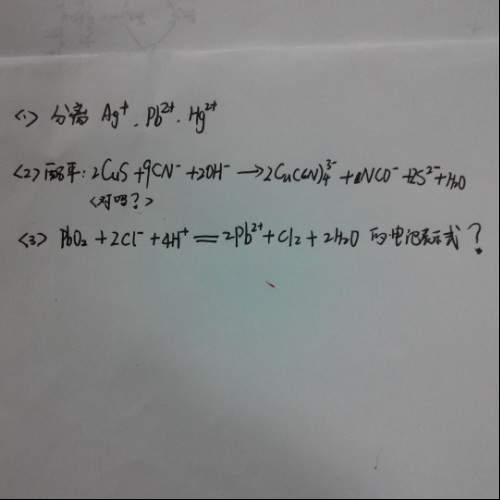 <1> 分离 Ag⁺、Pb²⁺、Hg²⁺
<2> 配平: 2CuS+9CN⁻+2OH⁻→2Cu(CN)₄³⁻+NCO⁻+2S²⁻+H₂O
<对吗?>
<3> PbO₂+2Cl⁻+4H⁺=2Pb²⁺+Cl₂+2H₂O 的电池表示式?